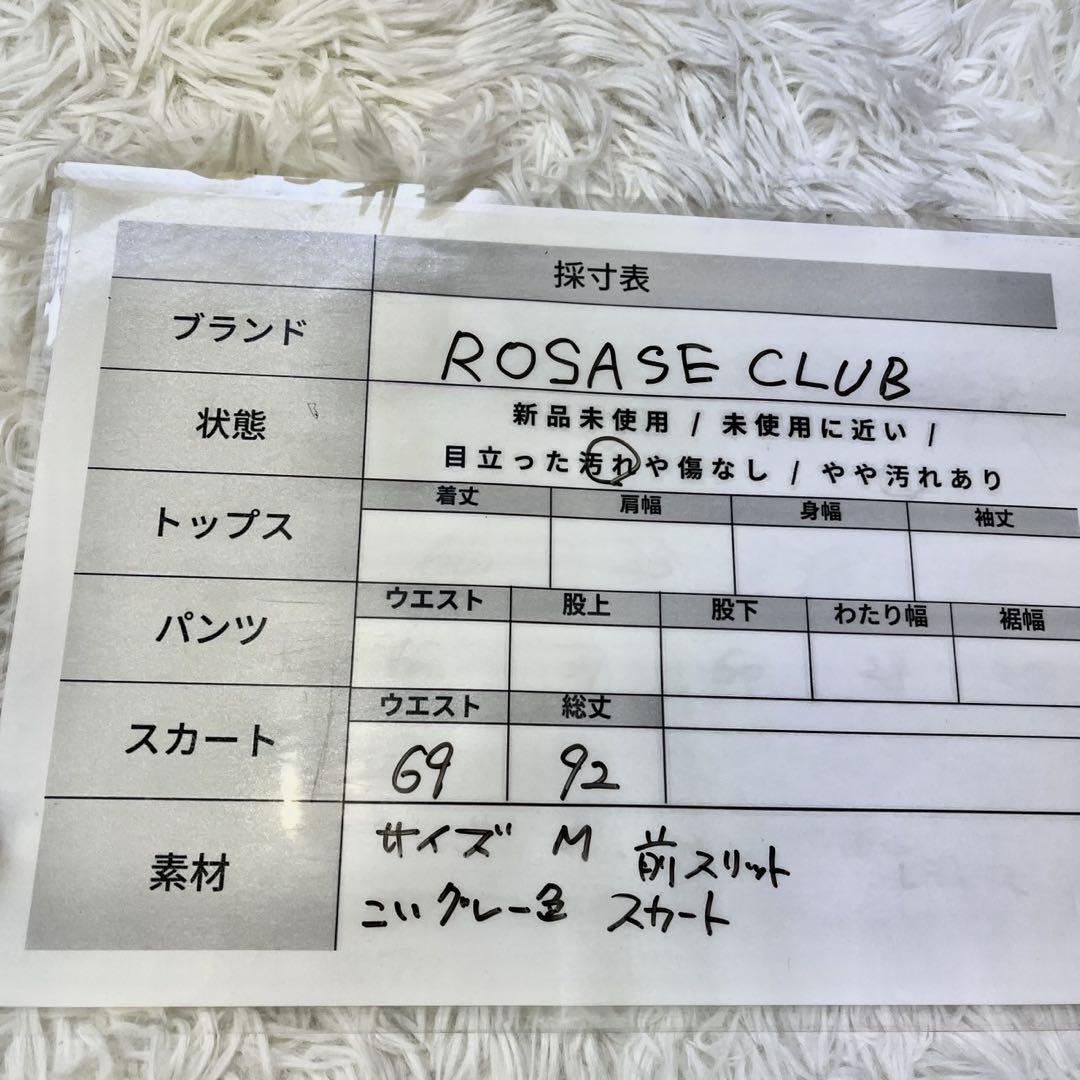 採寸表
ブランド ROSASE CLUB
状態 新品未使用 / 未使用に近い /
目立った汚れや傷なし / やや汚れあり
トップス 着丈 肩幅 身幅 袖丈
パンツ ウエスト 股上 股下 わたり幅 裾幅
スカート ウエスト 総丈
69 92
素材 サイズ M 前スリット
こいグレー色 スカート